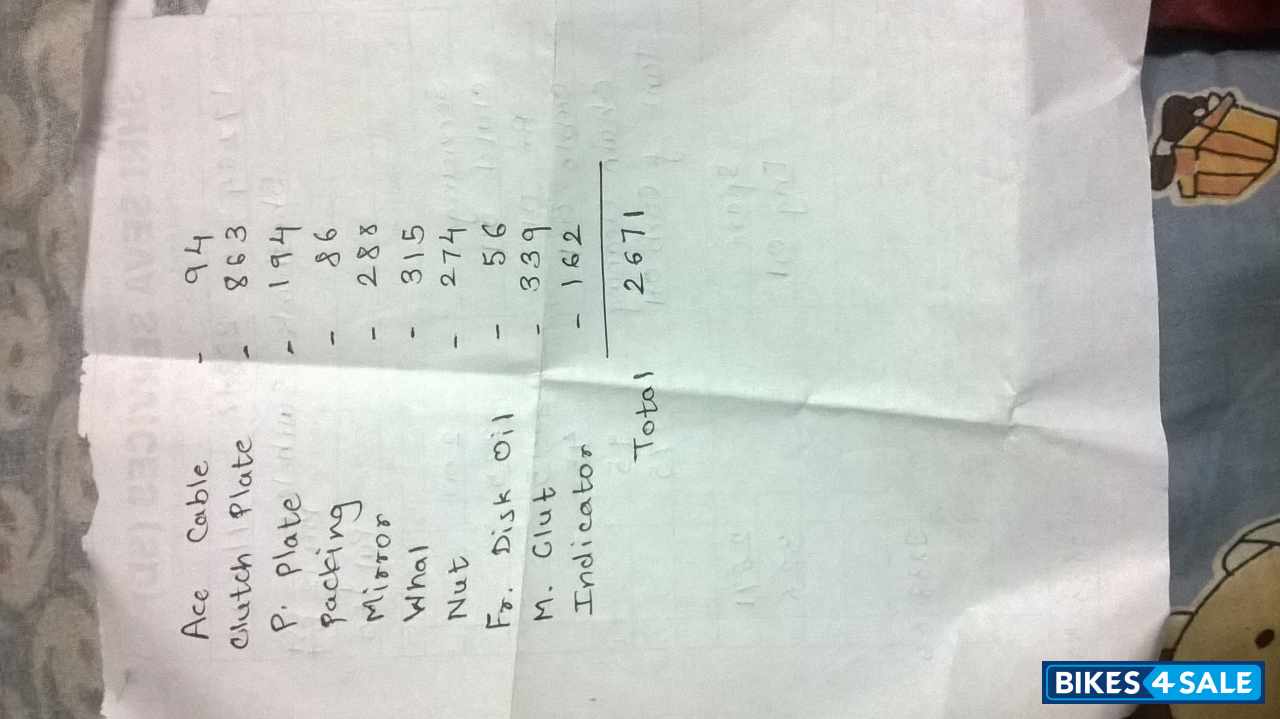 Acc Cable - 94
Clutch Plate - 863
P. Plate - 194
Packing - 86
Mirror - 288
Whal - 315
Nut - 274
Fr. Disk Oil - 56
M. Clut - 339
Indicator - 162
Total 2671
BIKES4SALE